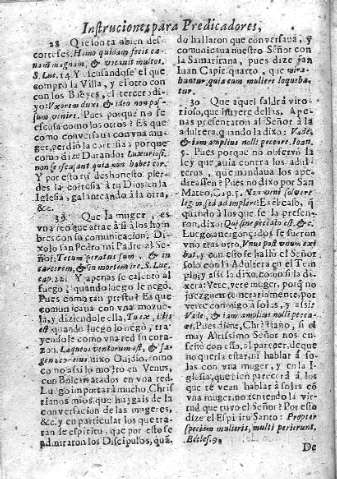 Instruciones para Predicadores,
28 Que los trabien des-
corteses. Homo quidam fecit cae-
nam magnam, & vocavit multos.
S. Luc. 14. Y escusandose el que
comprò la Villa, y el otro con
con los Bueyes, el tercer dixo:
Vxorem duxi & ideo non pos-
sum venire. Pues porque no se
escusa como los otros? Es que
como conversava con vna mu-
ger, perdiò la cortesia: porque
como dize Durando
Y por esto tu deshonesto, pier-
des la cortesia à tu Dios en la
Iglesia, galanteando à la otra,
&c.
29. Que la muger, es
vna red que atrae à si à los hom-
bres con su comunicacion. Di-
xolo san Pedro mi Padre al Se-
ñor: Tecum paratus sum, & in
carcerem, & in mortem ire. S. Luc.
cap. 22. Y apenas se calentò al
fuego, quando luego le negò.
Pues como tan presto? Es que
comunicava con vna moçue-
la, y diziendole ella,
est quando luego lo negò, tra-
yendole como vna red su cora-
zon.
dixo Ovidio, como
no os aveis
Luego importa mucho Chris-
tianos mios, que huygais de la
conversacion de las mugeres,
&c. y en particular los que tra-
tan de espiritu, que por esso se
admiraron los Discipulos, quã-
do hallaron que conversava, y
comunicava nuestro Señor con
la Samaritana, pues dize san
Juan Cap. 4. quarto, que mira-
bantur, quia cum muliere loquebа-
tur.
30. Que aquel saldrá vitо-
rioso, que huyere dellas. Ape-
nas presentaron al Señor à la
adultera, quando la dixo: Vade,
& iam amplius noli peccare. Ioan.
8. Pues porque no observò la
ley que avia contra los adul-
teros, que mandava los ape-
dreassen? Pues no dixo por San
Mateo, cap. 5. Non veni solvere
legem sed adimplere: Es el caso, q
quando à los que se la presen-
ron, dixo: Qui sine peccato est, &c.
Luego avergonçados se fueron
vno tras otro, Vnus post vnum exi-
bat, y como se hallò el Señor
solo con la Adultera en el Tem-
plo, y assi la dixo, como si la di-
xera: Vete, vete muger, porq no
juzguen temerariamente, por
verte conmigo à solas, y assi:
Vade, & iam amplius noli pecca-
re. Pues dime, Christiano, si el
muy Altissimo Señor nos en-
seño con esso, al parecer, de que
no queria estar, ni hablar à so-
las con vna muger, y en la I-
glesia, que bien parecerà los que
te vean hablar à solas con
vna muger, no teniendo la vir-
tud que tuvo el Señor? Por esso
dize el Espiritu Santo: Propter
speciem mulieris, multi perierunt,
Eccles. 9.
De